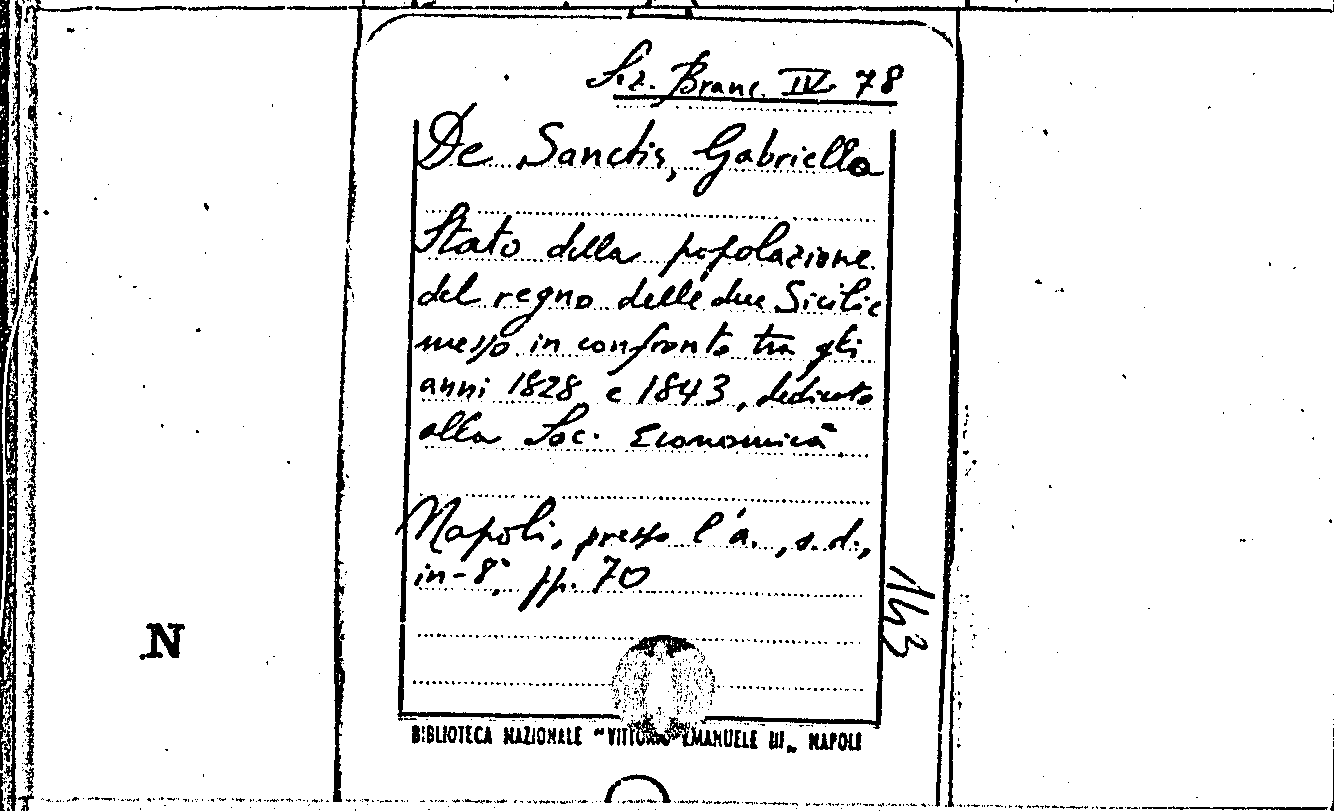 Sez. Branc. IV 78
De Sanctis, Gabriella
Stato della popolazione
del regno delle due Sicilie
messo in confronto tra gli
anni 1828 e 1843, dedicato
alla Soc. Economica
Napoli, presso l'a., s.d.,
in-8°, pp. 70
143
N
BIBLIOTECA NAZIONALE "VITTORIO EMANUELE III" NAPOLI